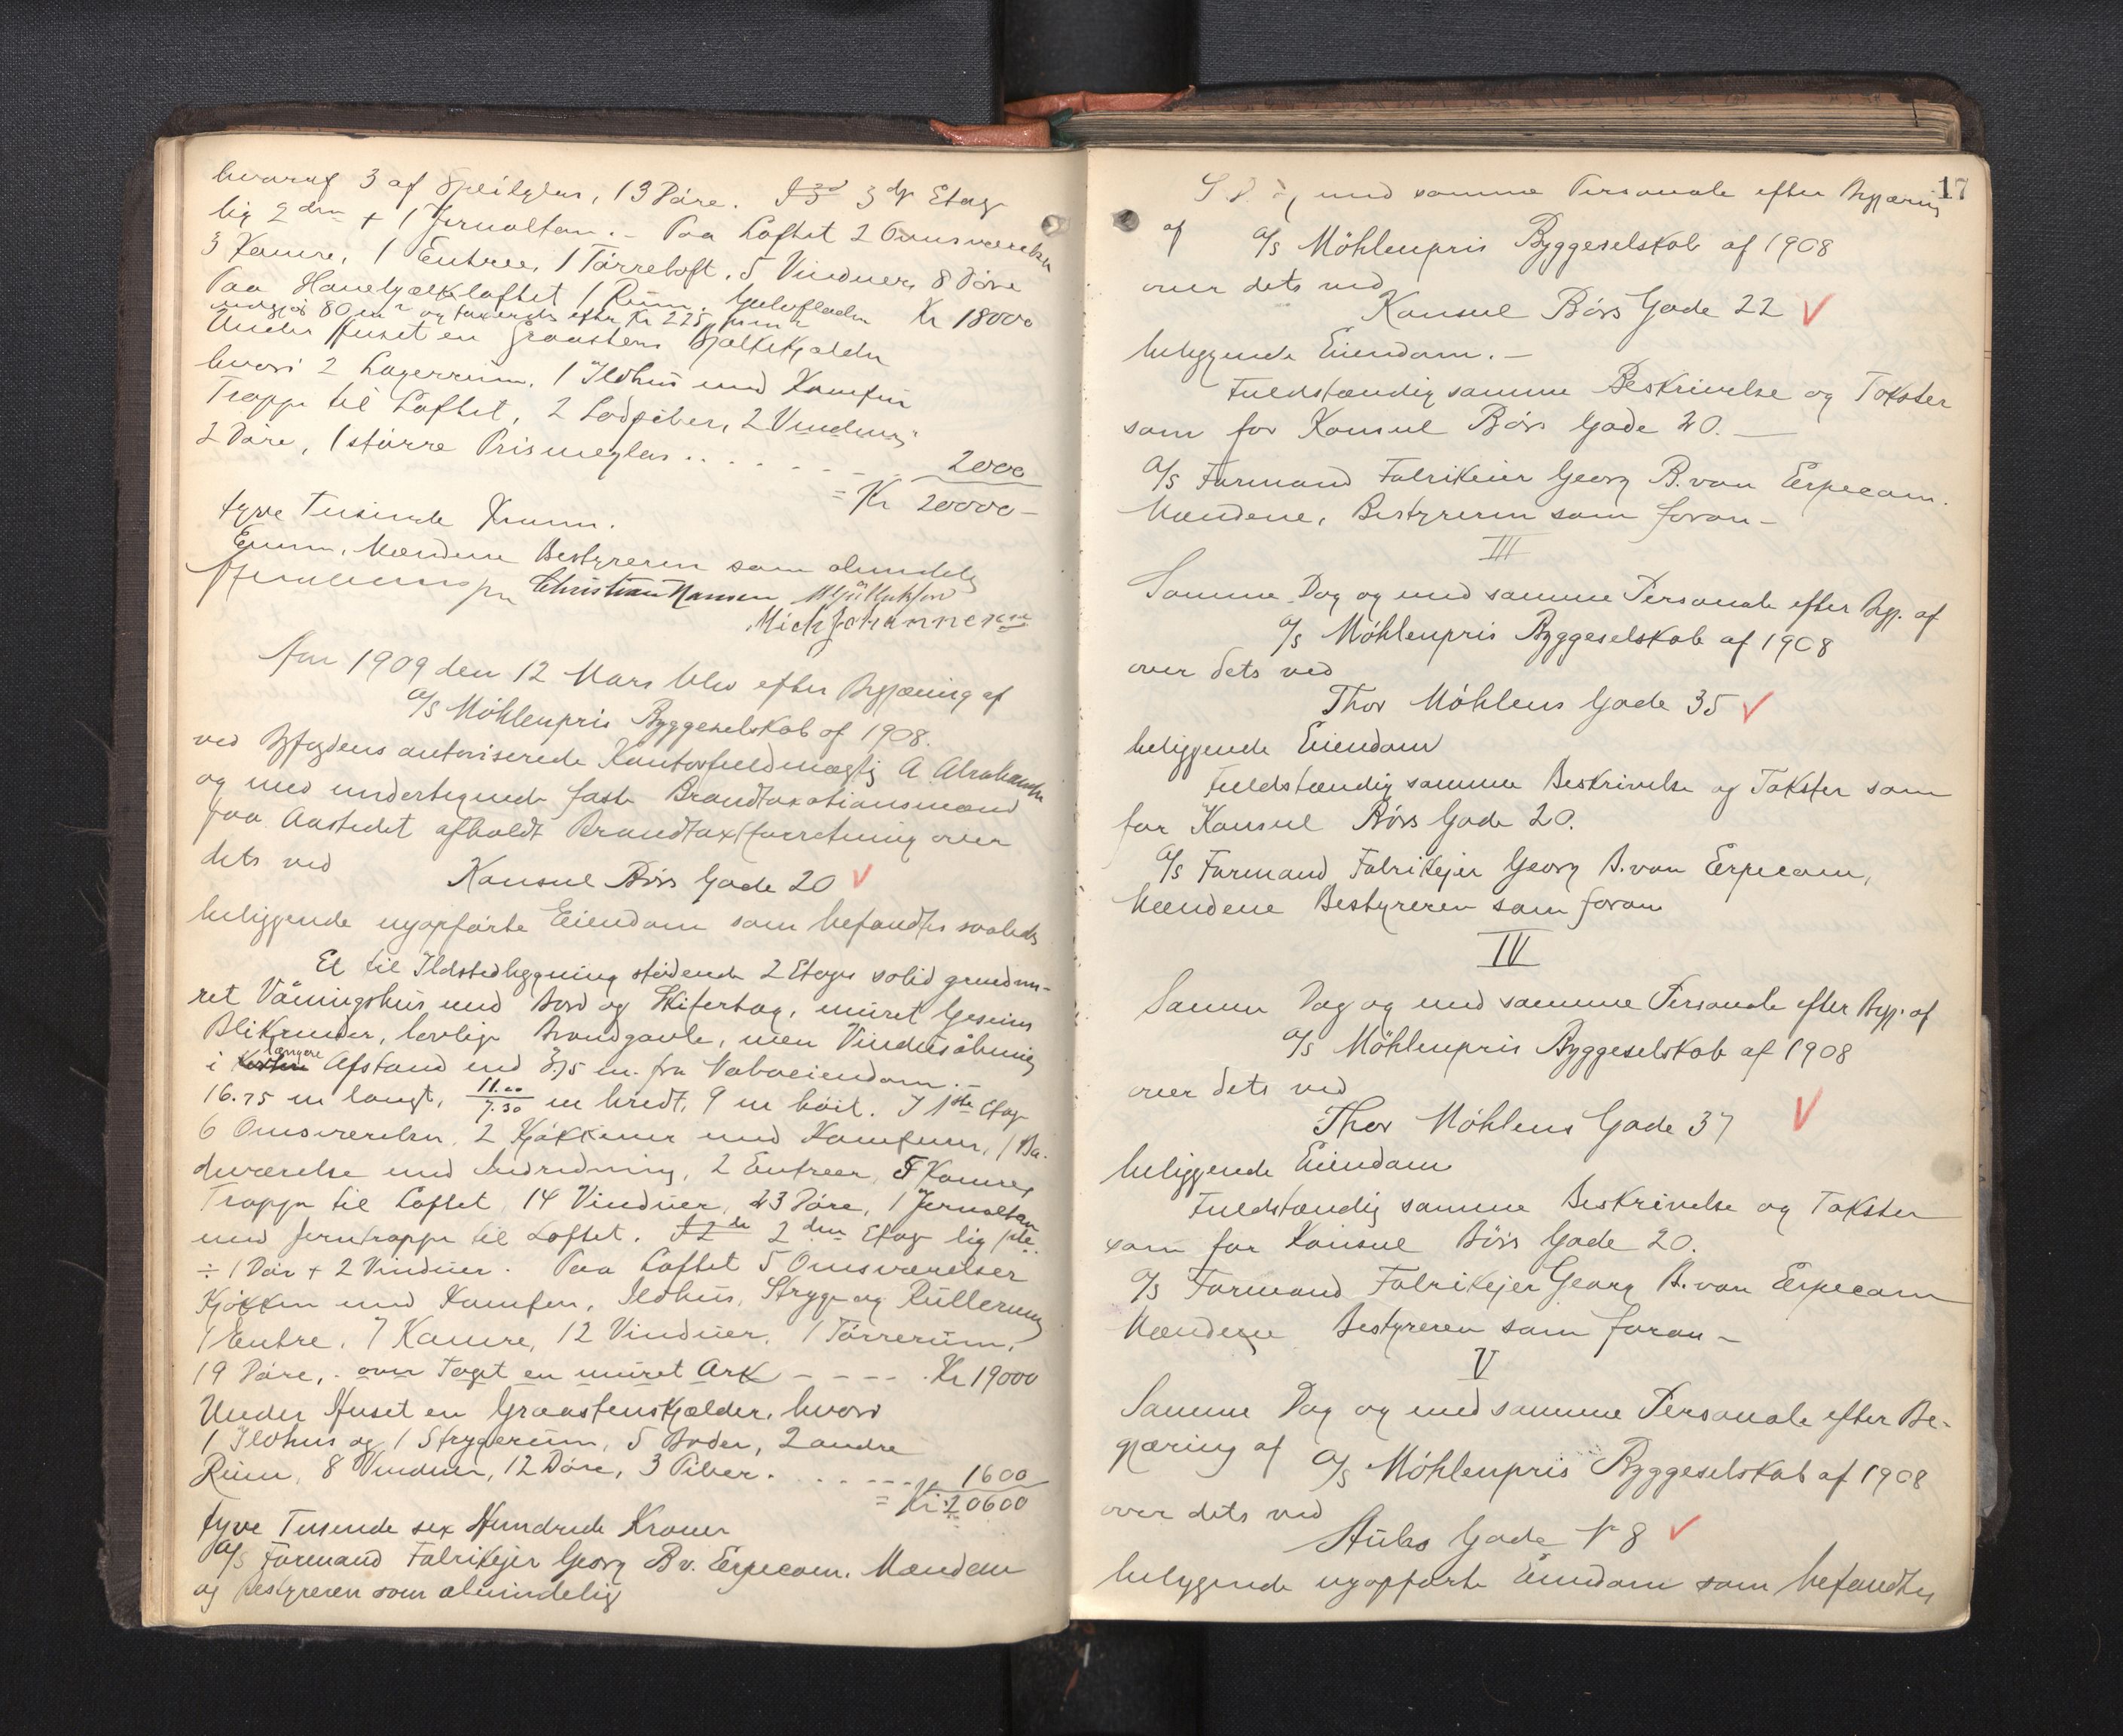 hvoraf 3 af Speilglas, 13 Döre. 3die Etage
lig 2den + 1 Jernaltan. - Paa Loftet 2 Omsværelser
3 Kamre, 1 Entree, 1 Törreloft, 5 Vinduer, 8 Döre
Paa Hanebjælkeloftet 1 Rum. Gulvfladen Kr 18000
udgjör 80 m² og taxeredes efter Kr 225 pr m²
Under Huset en Graastens Bjælkekjælder
hvori 2 Lagerrum, 1 Ildhus med Komfur
Trappe til Loftet, 2 Lodpiber, 2 Vinduer,
2 Döre, 1 större Prismeglas . . . . . 2000
= Kr 20000 -
tyve Tusinde Kroner.
Eieren, Mændene Bestyreren som almindelig
Christian Hansen
Mich Johannesen
Aar 1909 den 12 Mars blev efter Begjæring af
A/S Möhlenpris Byggeselskab af 1908.
ved Byfogdens autoriserede Kontorfuldmægtig A. Abrahamsen
og med undertegnede faste Brandtaxationsmænd
paa Aastedet afholdt Brandtaxtforretning over
dets ved Konsul Börs Gade 20 ✓
beliggende nyopförte Eiendom som befandtes saaledes
Et til Ildstedbygning stödende 2 Etages solid grundmu-
ret Våningshus med Bord og Skifertag, muret Gesims
Blikrender, lovlige Brandgavle, men Vindusåbning
i kortere længere Afstand end 3.75 m. fra Naboeiendom. -
16.75 m langt, 11.00/7.30 m bredt, 9 m höit. I 1ste Etage
6 Omsværelser, 2 Kjökkener med Komfurer, 1 Ba-
deværelse med Indredning, 2 Entreer, 5 Kamre,
Trappe til Loftet 14 Vinduer, 23 Döre, 1 Jernaltan
med Jerntrappe til Loftet. 2den Etage lig 1ste.
÷ 1 Dör + 2 Vinduer. Paa Loftet 5 Omsværelser
Kjökken med Komfur, Ildhus, Stryge og Rullerum
1 Entre, 7 Kamre, 12 Vinduer, 1 Törrerum,
19 Döre, . over Taget en muret Ark - - - - . Kr 19000
Under Huset en Graastenskjælder, hvori
1 Ildhus og 1 Strygerum, 5 Boder, 2 andre
Rum, 8 Vinduer, 12 Döre, 3 Piber . . . . . 1600
= Kr 20600
tyve Tusende sex Hundrede Kroner
A/S Formand Fabrikejer Georg B v. Erpecom. Mændene
og Bestyreren som almindelig
17
S. D. og med samme Personale efter Begjæring
af A/S Möhlenpris Byggeselskab af 1908
over dets ved
Konsul Börs Gade 22 ✓
beliggende Eiendom. -
Fuldstændig samme Beskrivelse og Takster
som for Konsul Börs Gade 20. -
A/S Formand Fabrikeier Georg B. von Erpecom.
Mændene, Bestyreren som foran -
III
Samme Dag og med samme Personale efter Begj. af
A/S Möhlenpris Byggeselskab af 1908
over dets ved
Thor Möhlens Gade 35 ✓
beliggende Eiendom
Fuldstændig samme Beskrivelse og Takster som
for Konsul Börs Gade 20.
A/S Formand Fabrikejer Georg B. von Erpecom,
Mændene Bestyreren som foran
IV
Samme Dag og med samme Personale efter Begj. af
A/S Möhlenpris Byggeselskab af 1908
over dets ved
Thor Möhlens Gade 37 ✓
beliggende Eiendom
Fuldstændig samme Beskrivelse og Takster
som for Konsul Börs Gade 20.
A/S Formand Fabrikejer Georg B. von Erpecom
Mændene Bestyreren som foran -
V
Samme Dag og med samme Personale efter Be-
gjæring af A/S Möhlenpris Byggeselskab af 1908
over dets ved
Stubs Gade № 8 ✓
beliggende nyopförte Eiendom som befandtes